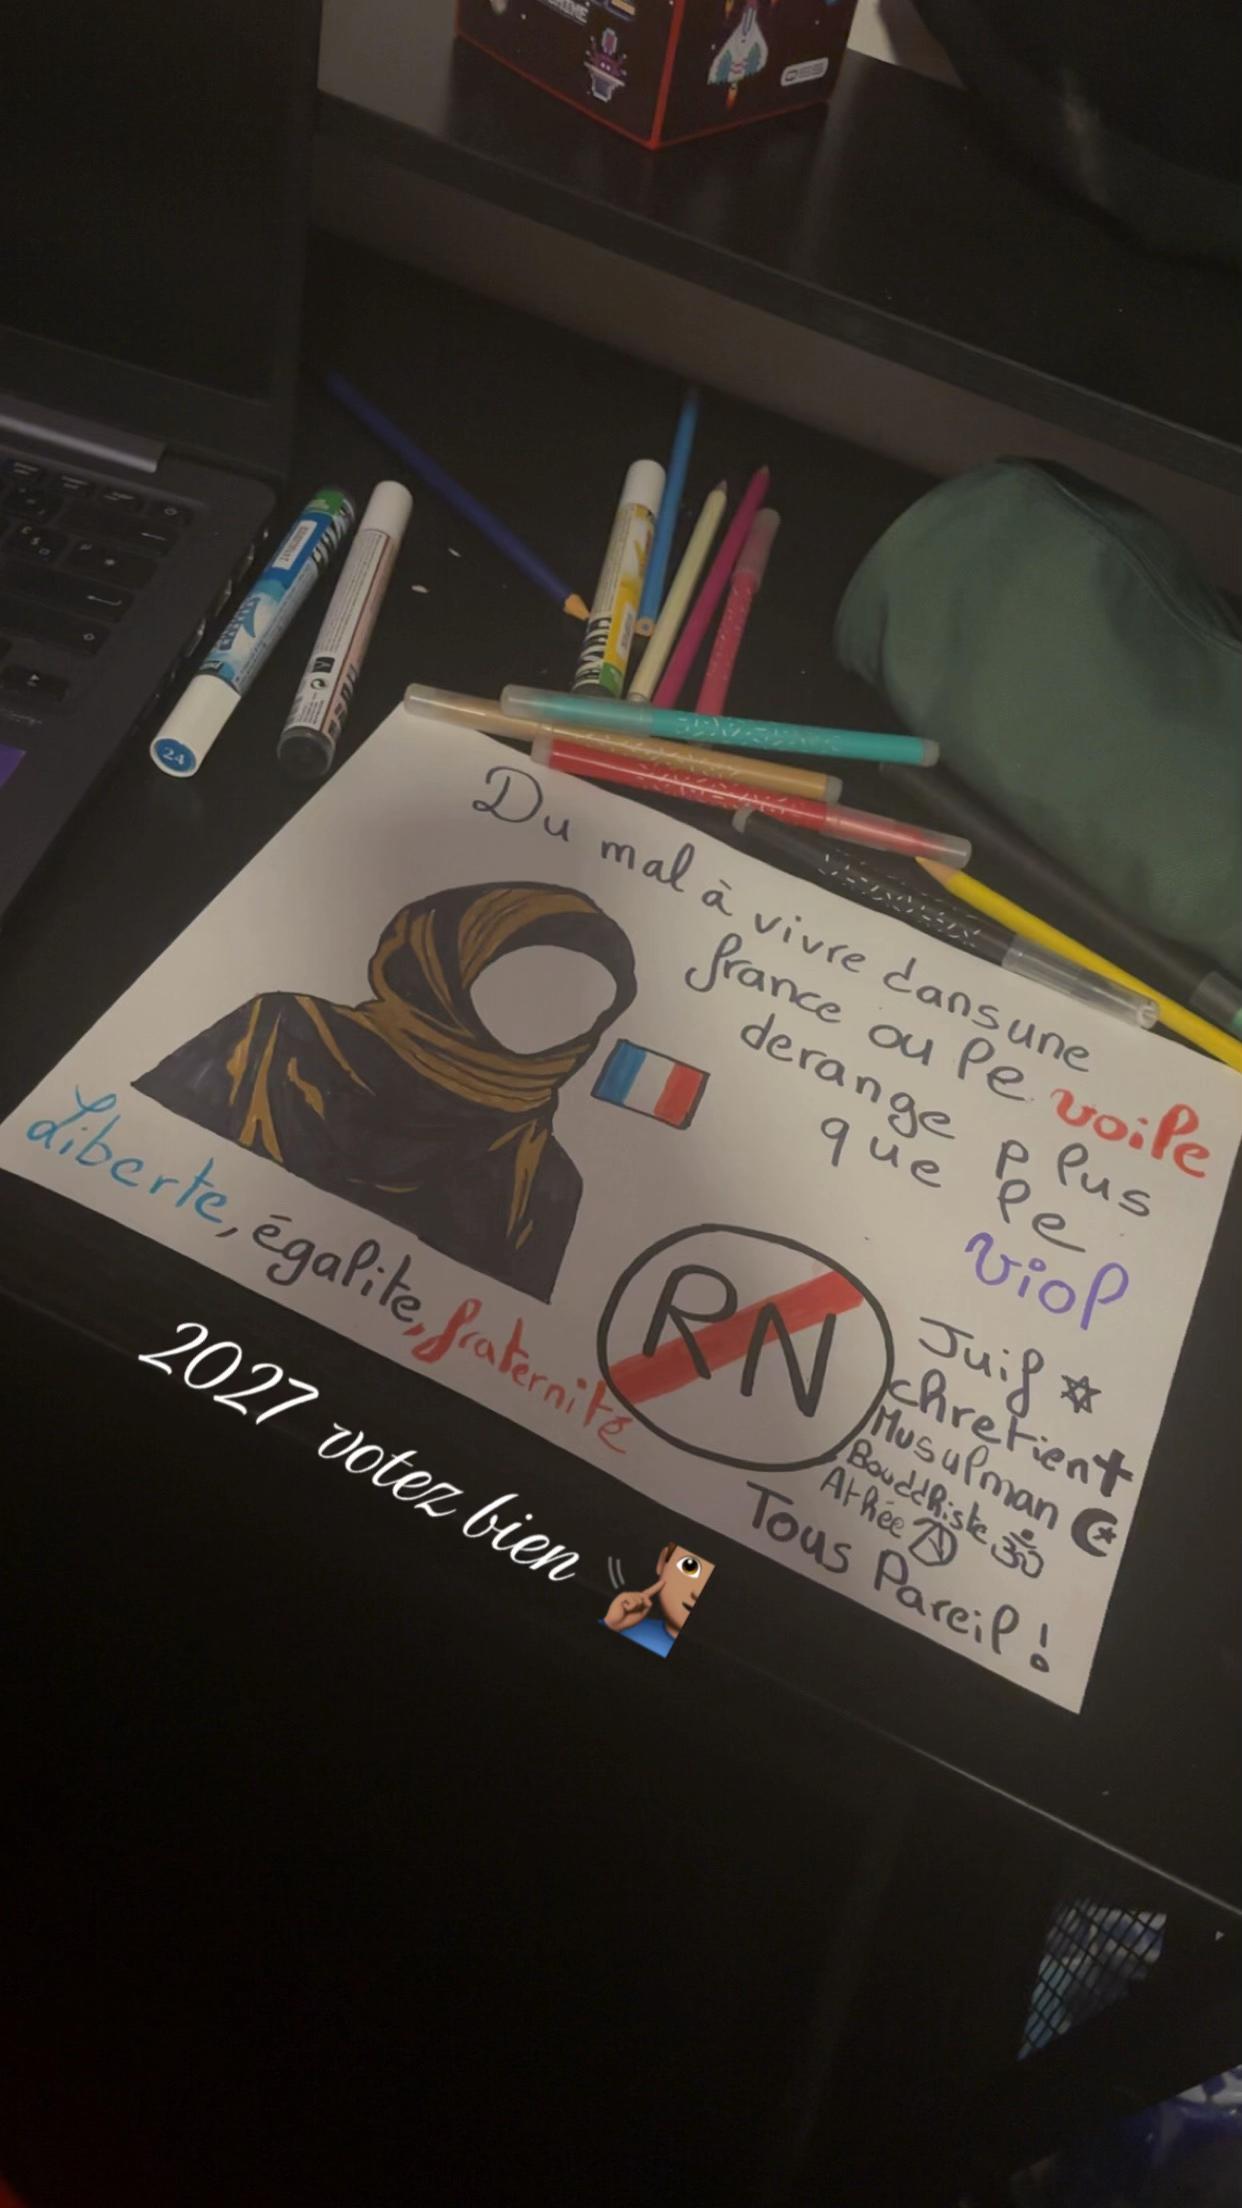 Du mal à vivre dans une
france ou le voile
derange plus
que le
viol
Liberte, égalite, fraternité
RN
Juif
chretien
Musulman
Bouddhiste
Athée
Tous Pareil !
2027 votez bien
24